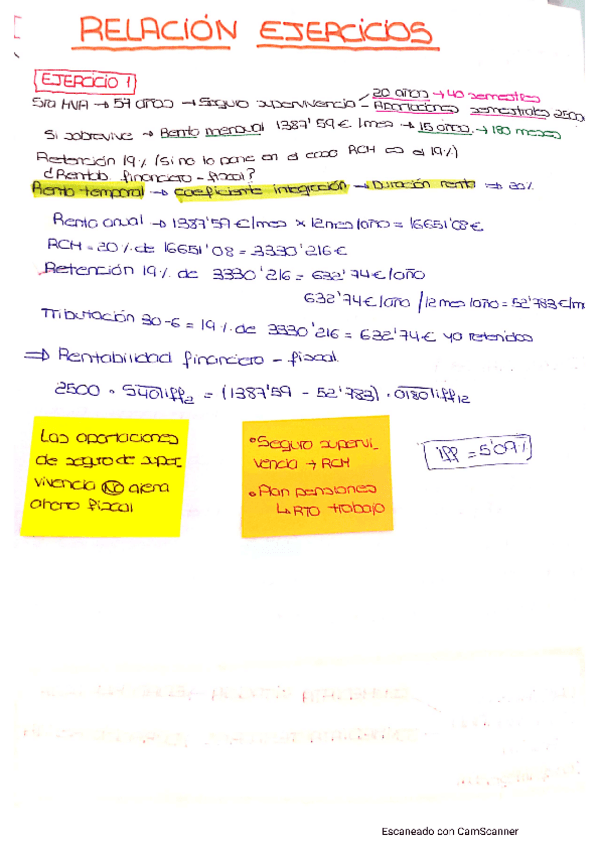 RELACIÓN EJERCICIOS
EJERCICIO 1
Sra HVA → 59 años → Seguro supervivencia - 20 años → 40 semestres
Aportaciones semestrales 2500
Si sobrevive → Renta mensual 1387'59€/mes → 15 años → 180 meses
Retención 19% (Si no lo pone en el caso RCH es el 19%)
¿Rentab. financiero-fiscal?
Renta temporal → coeficiente integración → Duración renta ⇒ 20%
Renta anual → 1387'59€/mes x 12 mes/año = 16651'08€
RCH = 20% de 16651'08 = 3330'216€
Retención 19% de 3330'216 = 632'74€/año
632'74€/año /12mes/año = 52'783€/m
Tributación 30-6 = 19% de 3330'216 = 632'74€ ya retenidos
⇒ Rentabilidad financiero-fiscal.
2500 · S40|iff2 = (1387'59 - 52'783) · a180|iff12
iff = 5'09%
Las aportaciones
de seguro de super_
vivencia NO genera
ahorro fiscal
• Seguro supervi_
vencia → RCH
• Plan pensiones
↳ RTO trabajo
Escaneado con CamScanner